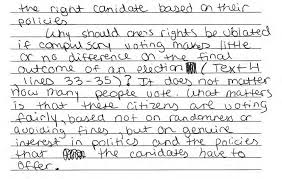 the right canidate based on their
policies.
Why should ones rights be violated
if compulsory voting makes little
or no difference on the final
outcome of an election (Text 4
lines 33-35)? It does not matter
How many people vote. What matters
is that these citizens are voting
fairly, based not on randomness or
avoiding fines, but on genuine
interest in politics and the policies
that the candidates have to
offer.